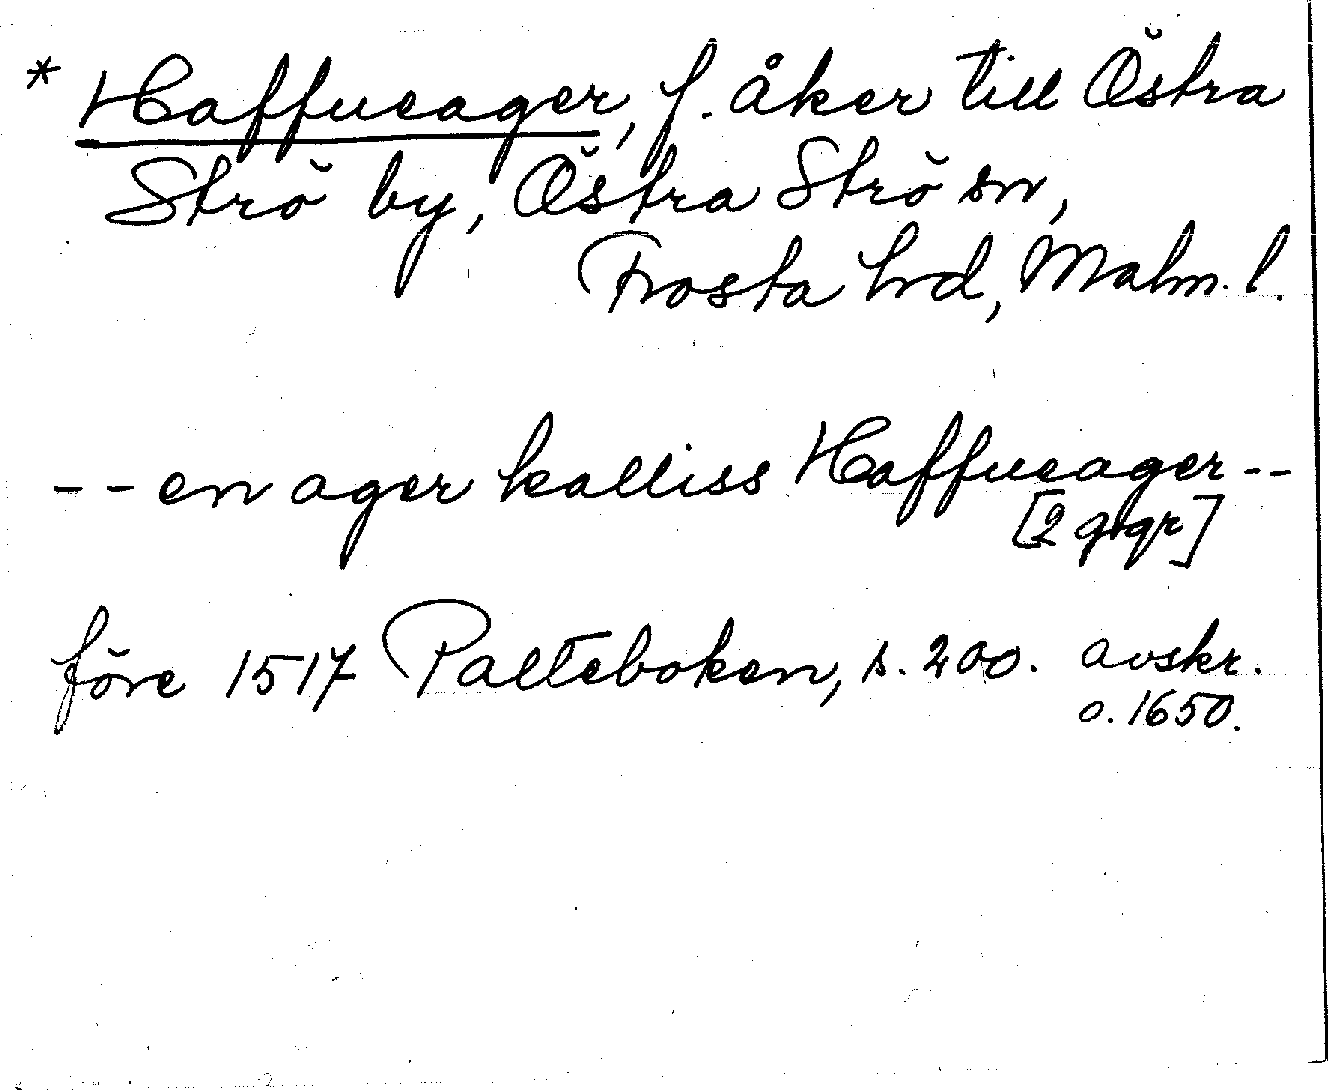 * Haffueager, f. åker till Östra
Strö by, Östra Strö sn,
Frosta hd, Malm. l.
-- en ager kalliss Haffueager --
[2 ggr]
före 1517 Palteboken, s. 200. avskr.
o. 1650.